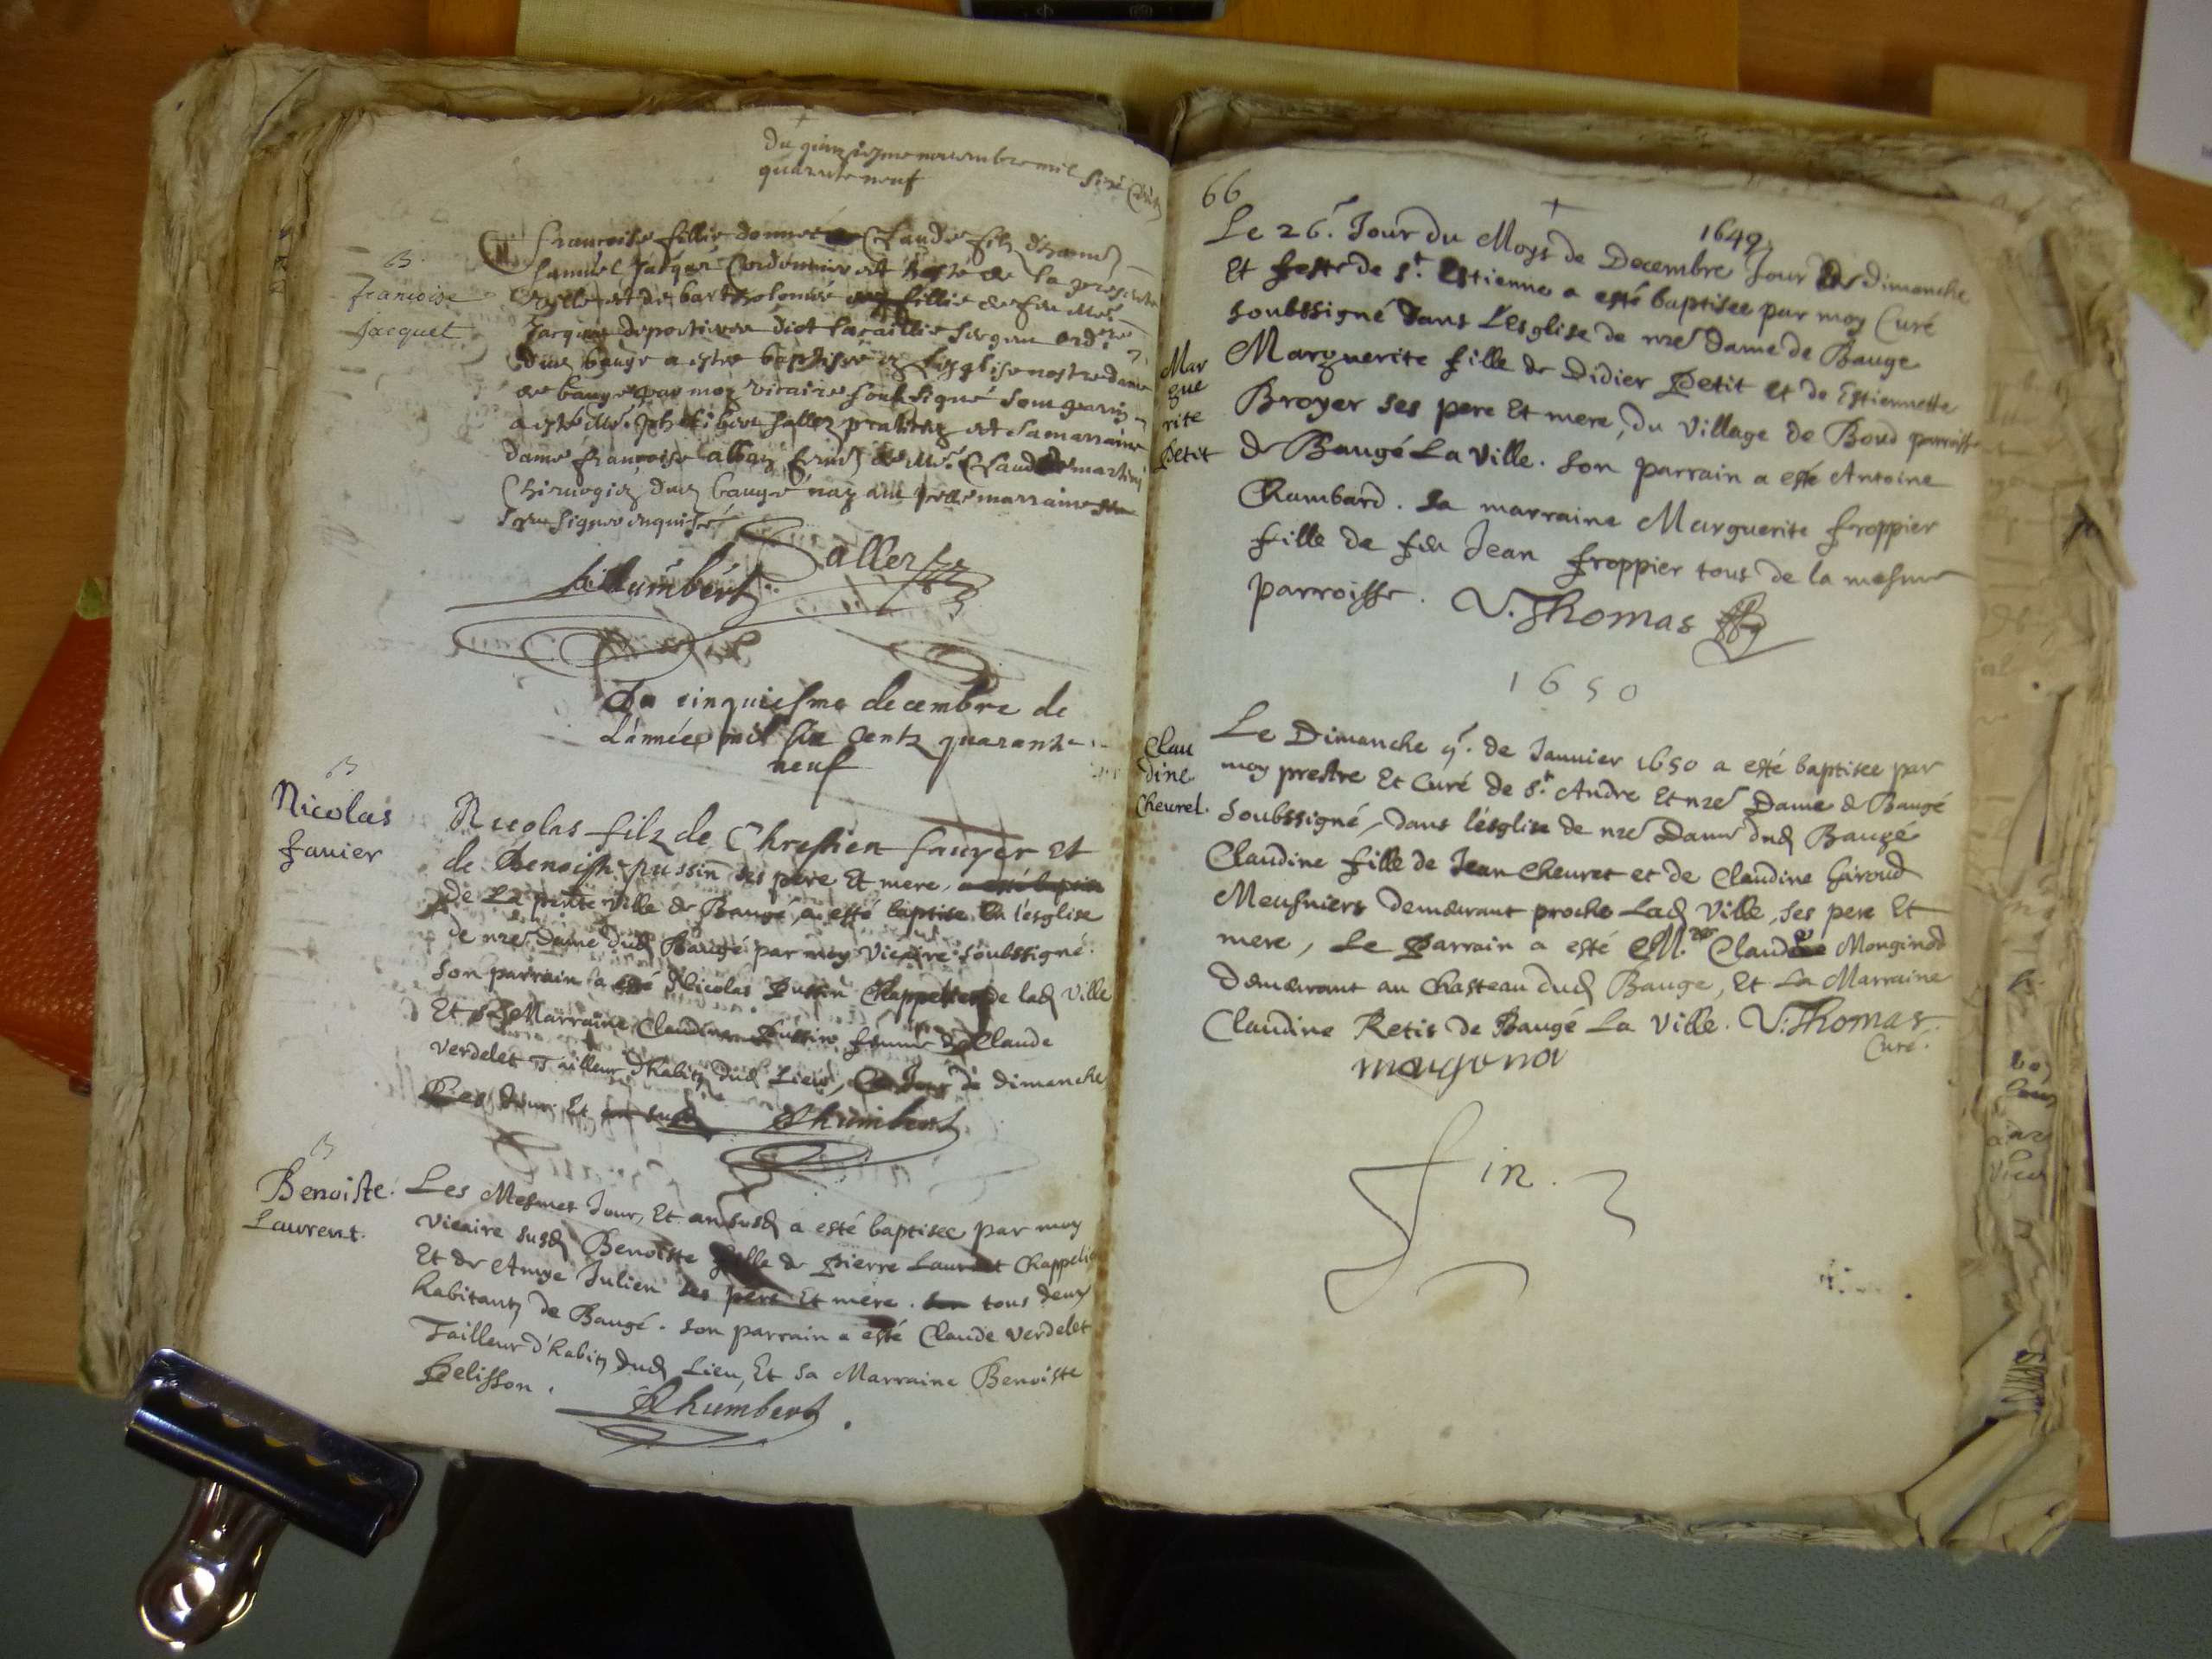 Du quinziesme novembre mil six cents
quarante neuf
B
francoise
Jacquet
francoise fillie donnet Claude filz d'honn
Samuel Jacquet Cordonnier et hoste de la presente
ville et de bartholomée fillie de feu Me
Jacques diot sergent ord.re
dud bauge a estre baptisée en l'esglise nostre dame
de bauge par moy vicaire soubsigné son parrin
a esté Me. Saller praticien et sa marraine
dame francoise femme de Me. Claude martin
Chirurgien dud bauge nay
signer enquise
Saller
Rhumbert
Du cinquiesme decembre de
L'année mil six centz quarante
neuf
B
Nicolas
favier
Nicolas filz de Chrestien favyer et
de Benoiste pussin ses pere Et mere, a esté baptise
de La pnte ville de Baugé, a esté baptise En l'esglise
de nre Dame dud Baugé par moy Vicaire soubssigné.
son parrain a esté Nicolas Pussin Chappellier de lad ville
Et sa Marraine Claudine Pussin femme de Claude
verdelet Tailleur d'habitz dud Lieu, Ce Jour de dimanche
Les Jour Et an susd Rhumbert
B
Benoiste
Laurent.
Les Mesmes Jour, Et an susd a esté baptisee par moy
vicaire susd Benoiste fille de Pierre Laurent Chappelier
Et de Amye Julien ses pere Et mere. son tous deux
habitantz de Baugé. son parrain a esté Claude verdelet
Tailleur d'habitz dud Lieu, Et sa Marraine Benoiste
Pelisson.
Rhumbert
66
1649
Le 26e. Jour du Moys de Decembre Jour de dimanche
Et feste de St. Estienne a esté baptisee par moy Curé
soubssigné Dans L'esglise de nre Dame de Bauge
Mar
gue
rite
Petit
Marguerite fille de Didier Petit et de Estiennette
Broyer ses pere Et mere, du village de Boud parroisse
de Baugé La ville. son parrain a esté Antoine
Chambard. sa marraine Marguerite froppier
fille de feu Jean froppier tous de la mesme
parroisse. V. Thomas
1650
Clau
dine
Cheuret.
Le Dimanche 9e. de Januier 1650 a esté baptisee par
moy prestre Et Curé de St. Andre Et nre Dame de Baugé
soubssigné, dans l'esglise de nre Dame dud Baugé
Claudine fille de Jean Cheuret et de Claudine Giroud
Meusniers demeurant proche Lad ville, ses pere Et
mere, Le Parrain a esté M.re Claude Monginod
demeurant au Chasteau dud Bauge, Et La Marraine
Claudine Retis de Baugé La ville. V. Thomas
Curé.
monginod
fin.